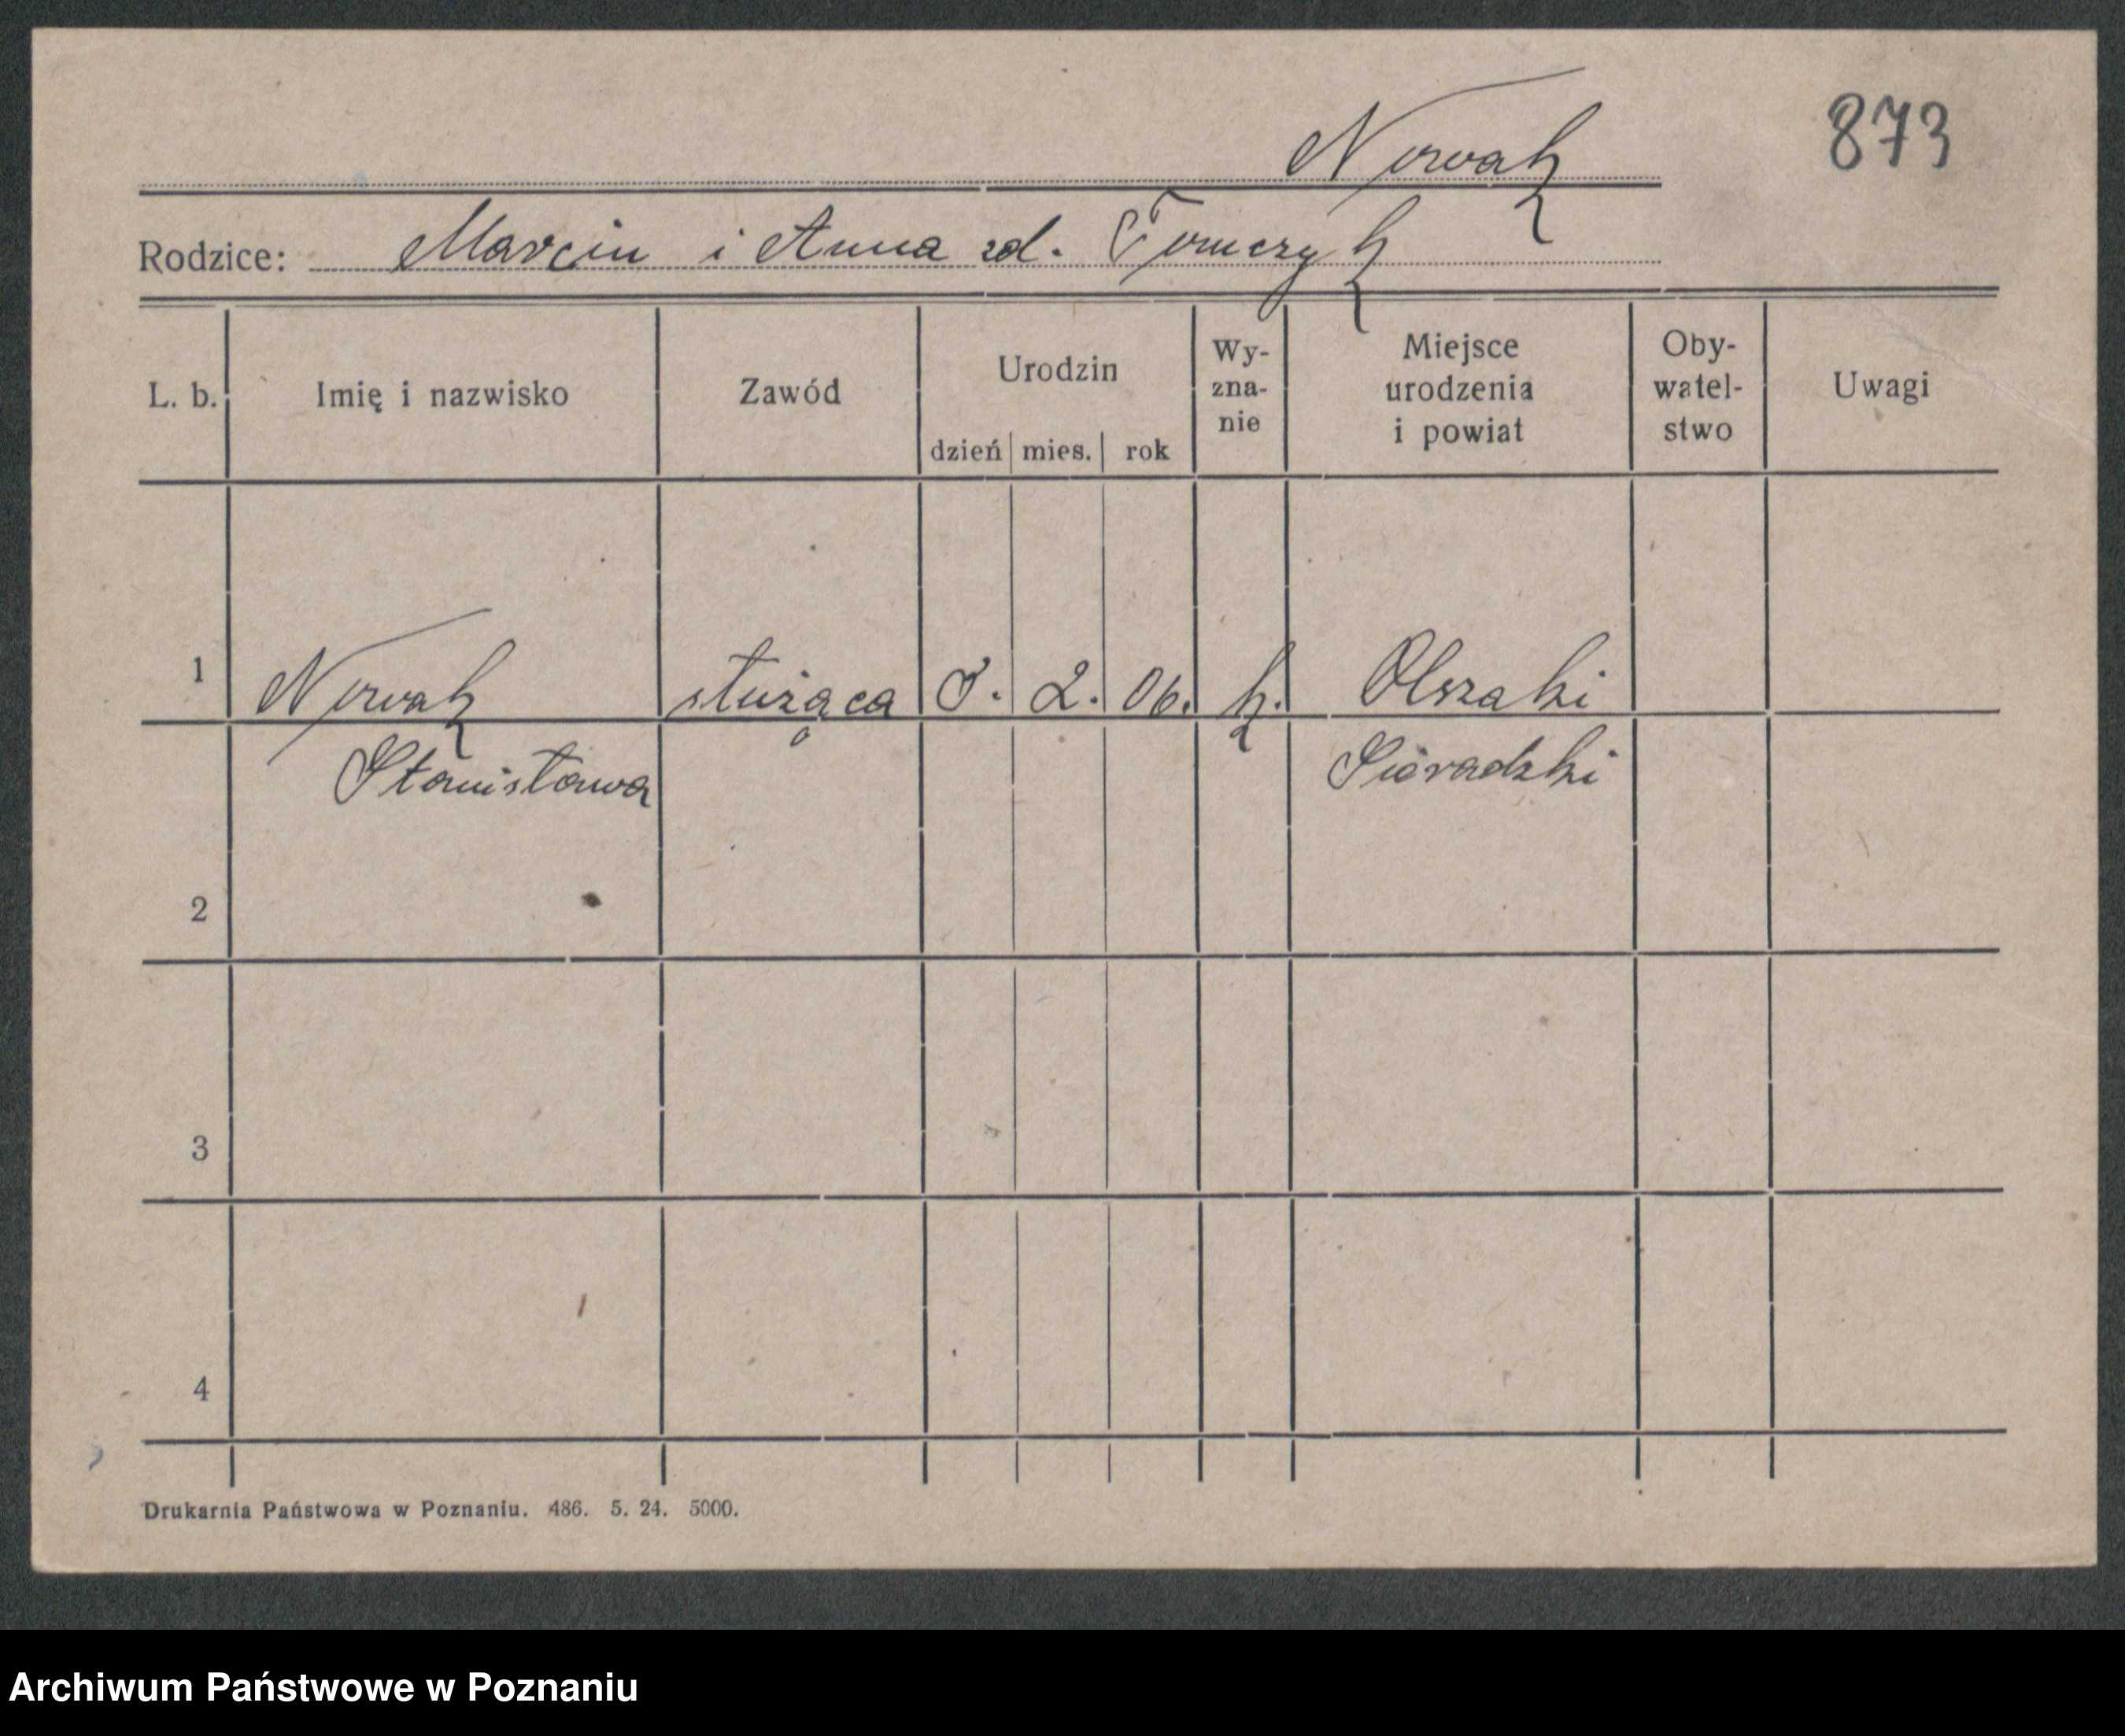 Nowak 873
Rodzice: Marcin i Anna zd. Tomczyk
L. b. Imię i nazwisko Zawód Urodzin dzień mies. rok Wy-zna-nie Miejsce urodzenia i powiat Oby-watel-stwo Uwagi
1 Nowak służąca 2. 06. k. Olszaki
Stanisława Sieradzki
2
3
4
Drukarnia Państwowa w Poznaniu. 486. 5. 24. 5000.
Archiwum Państwowe w Poznaniu